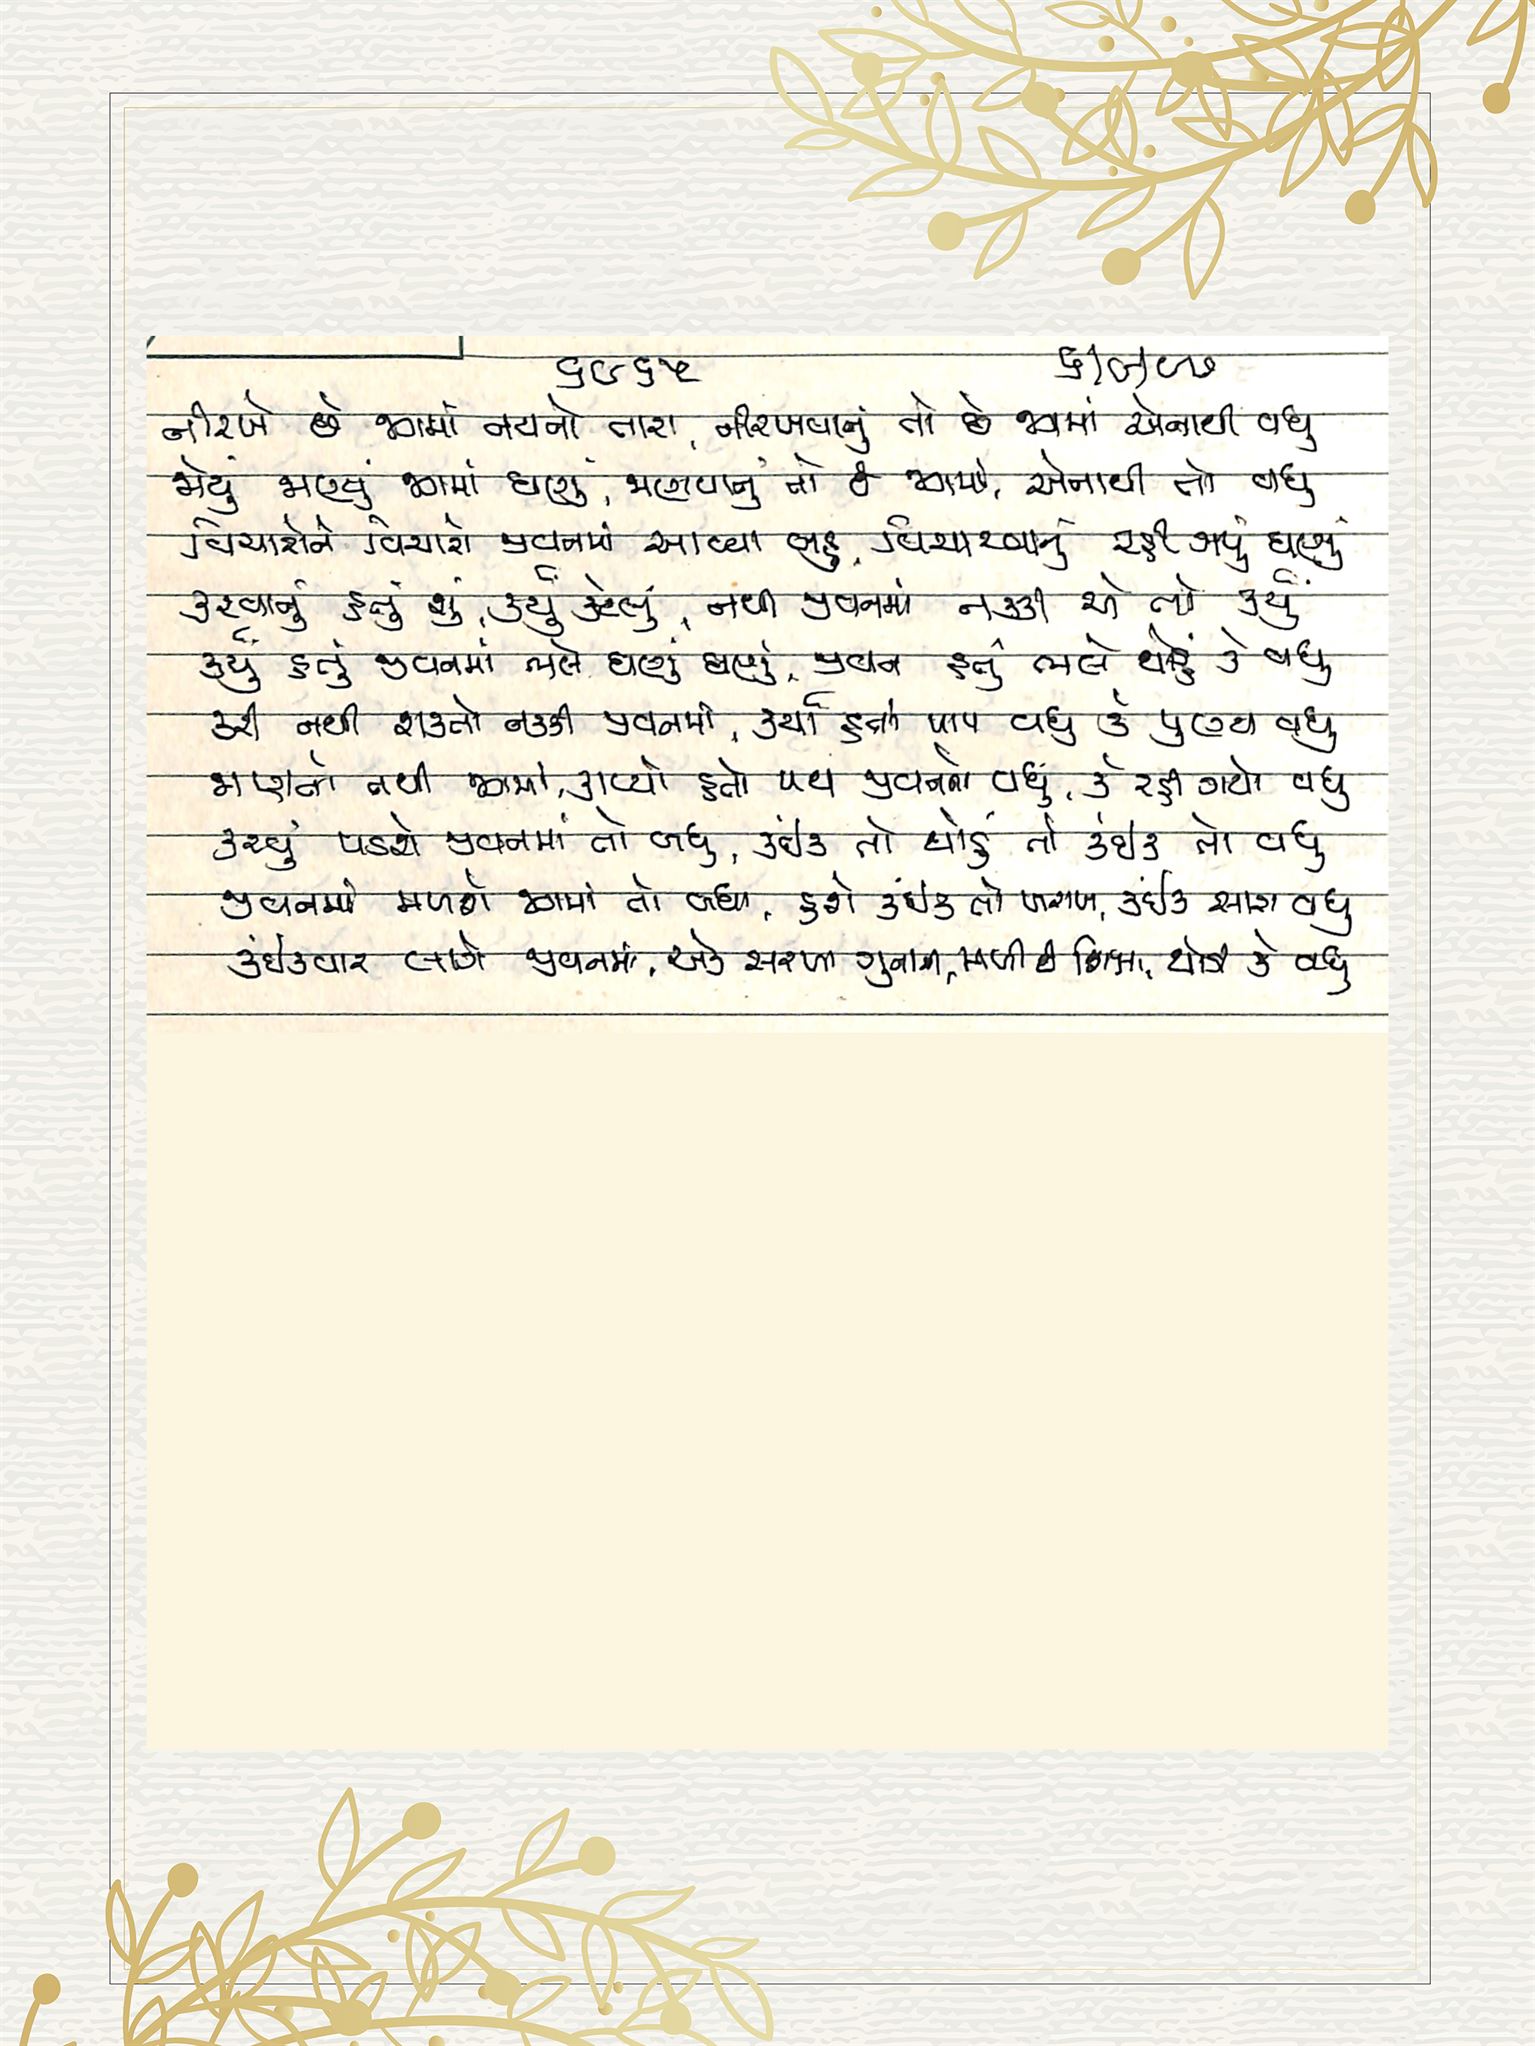 ૬૯૬૫
નીરખે છે જગમાં નયનો તારા, નીરખવાનું તો છે જગમાં એનાથી વધુ
જોયું જાણ્યું જગમાં ઘણું, જાણવાનું તો છે જગમાં, એનાથી તો વધુ
વિચારોને વિચારો જીવનમાં આવ્યા બહુ, વિચારવાનું રહી ગયું ઘણું
કરવાનું હતું શું, કર્યું કેટલું, નથી જીવનમાં નક્કી એ તો કર્યું
કર્યું હતું જીવનમાં ભલે ઘણું ઘણું, જીવન હતું ભલે થોડું કે વધુ
કરી નથી શક્તો નક્કી જીવનમાં, કર્યા હતા પાપ વધુ કે પુણ્ય વધુ
જાણતો નથી જગમાં, કાપ્યો હતો પથ જીવનનો વધું, કે રહી ગયો વધુ
કરવું પડશે જીવનમાં તો બધુ, કંઈક તો થોડું તો કંઈક તો વધુ
જીવનમાં મળશે જગમાં તો બધા, હશે કંઈક તો ખરાબ, કંઈક સારા વધુ
કંઈકવાર લાગે જીવનમાં, એક સરખા ગુનાના, મળી છે શિક્ષા, થોડી કે વધુ